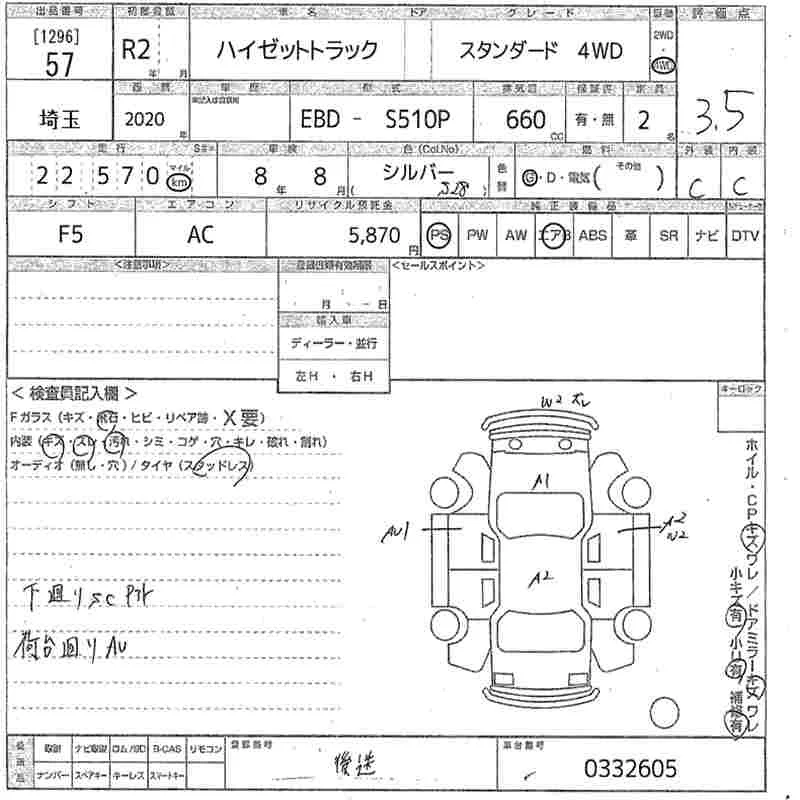 出品番号 初度登録 車名 ドア グレード 駆動 評価点
[1296]
57
R2 年 月
ハイゼットトラック
スタンダード 4WD
2WD
4WD
3.5
車歴 型式 排気量 保証書 定員
埼玉
2020 年
EBD - S510P
660 CC
有・無
2 名
走行 車検 色(Col.No) 燃料 外装 内装
22,570
マイル
km
8 年 8 月
シルバー
( S28 )
色替
G・D・電気( その他 )
C C
シフト エアコン リサイクル預託金 純正装備品
F5
AC
5,870 円
PS PW AW エアB ABS 革 SR ナビ DTV
<注意事項>
月 日
輸入車
ディーラー・並行
左H ・ 右H
<セールスポイント>
< 検査員記入欄 >
Fガラス (キズ・飛石・ヒビ・リペア跡・X要)
内装 (キズ・スレ・汚れ・シミ・コゲ・穴・キレ・破れ・割れ)
オーディオ (無し・穴) / タイヤ (スタッドレス)
下廻りSC
荷台回りAU
キーロック
W2 ズレ
A1
AU1
A2
W2
A2
ホイル・CPキズワレ/ドアミラーキズワレ
小キズ有/小凹有/補修有
取説 ナビ取説 ロム/SD B-CAS リモコン
ナンバー スペアキー キーレス スマートキー
登録番号
後送
車台番号
0332605